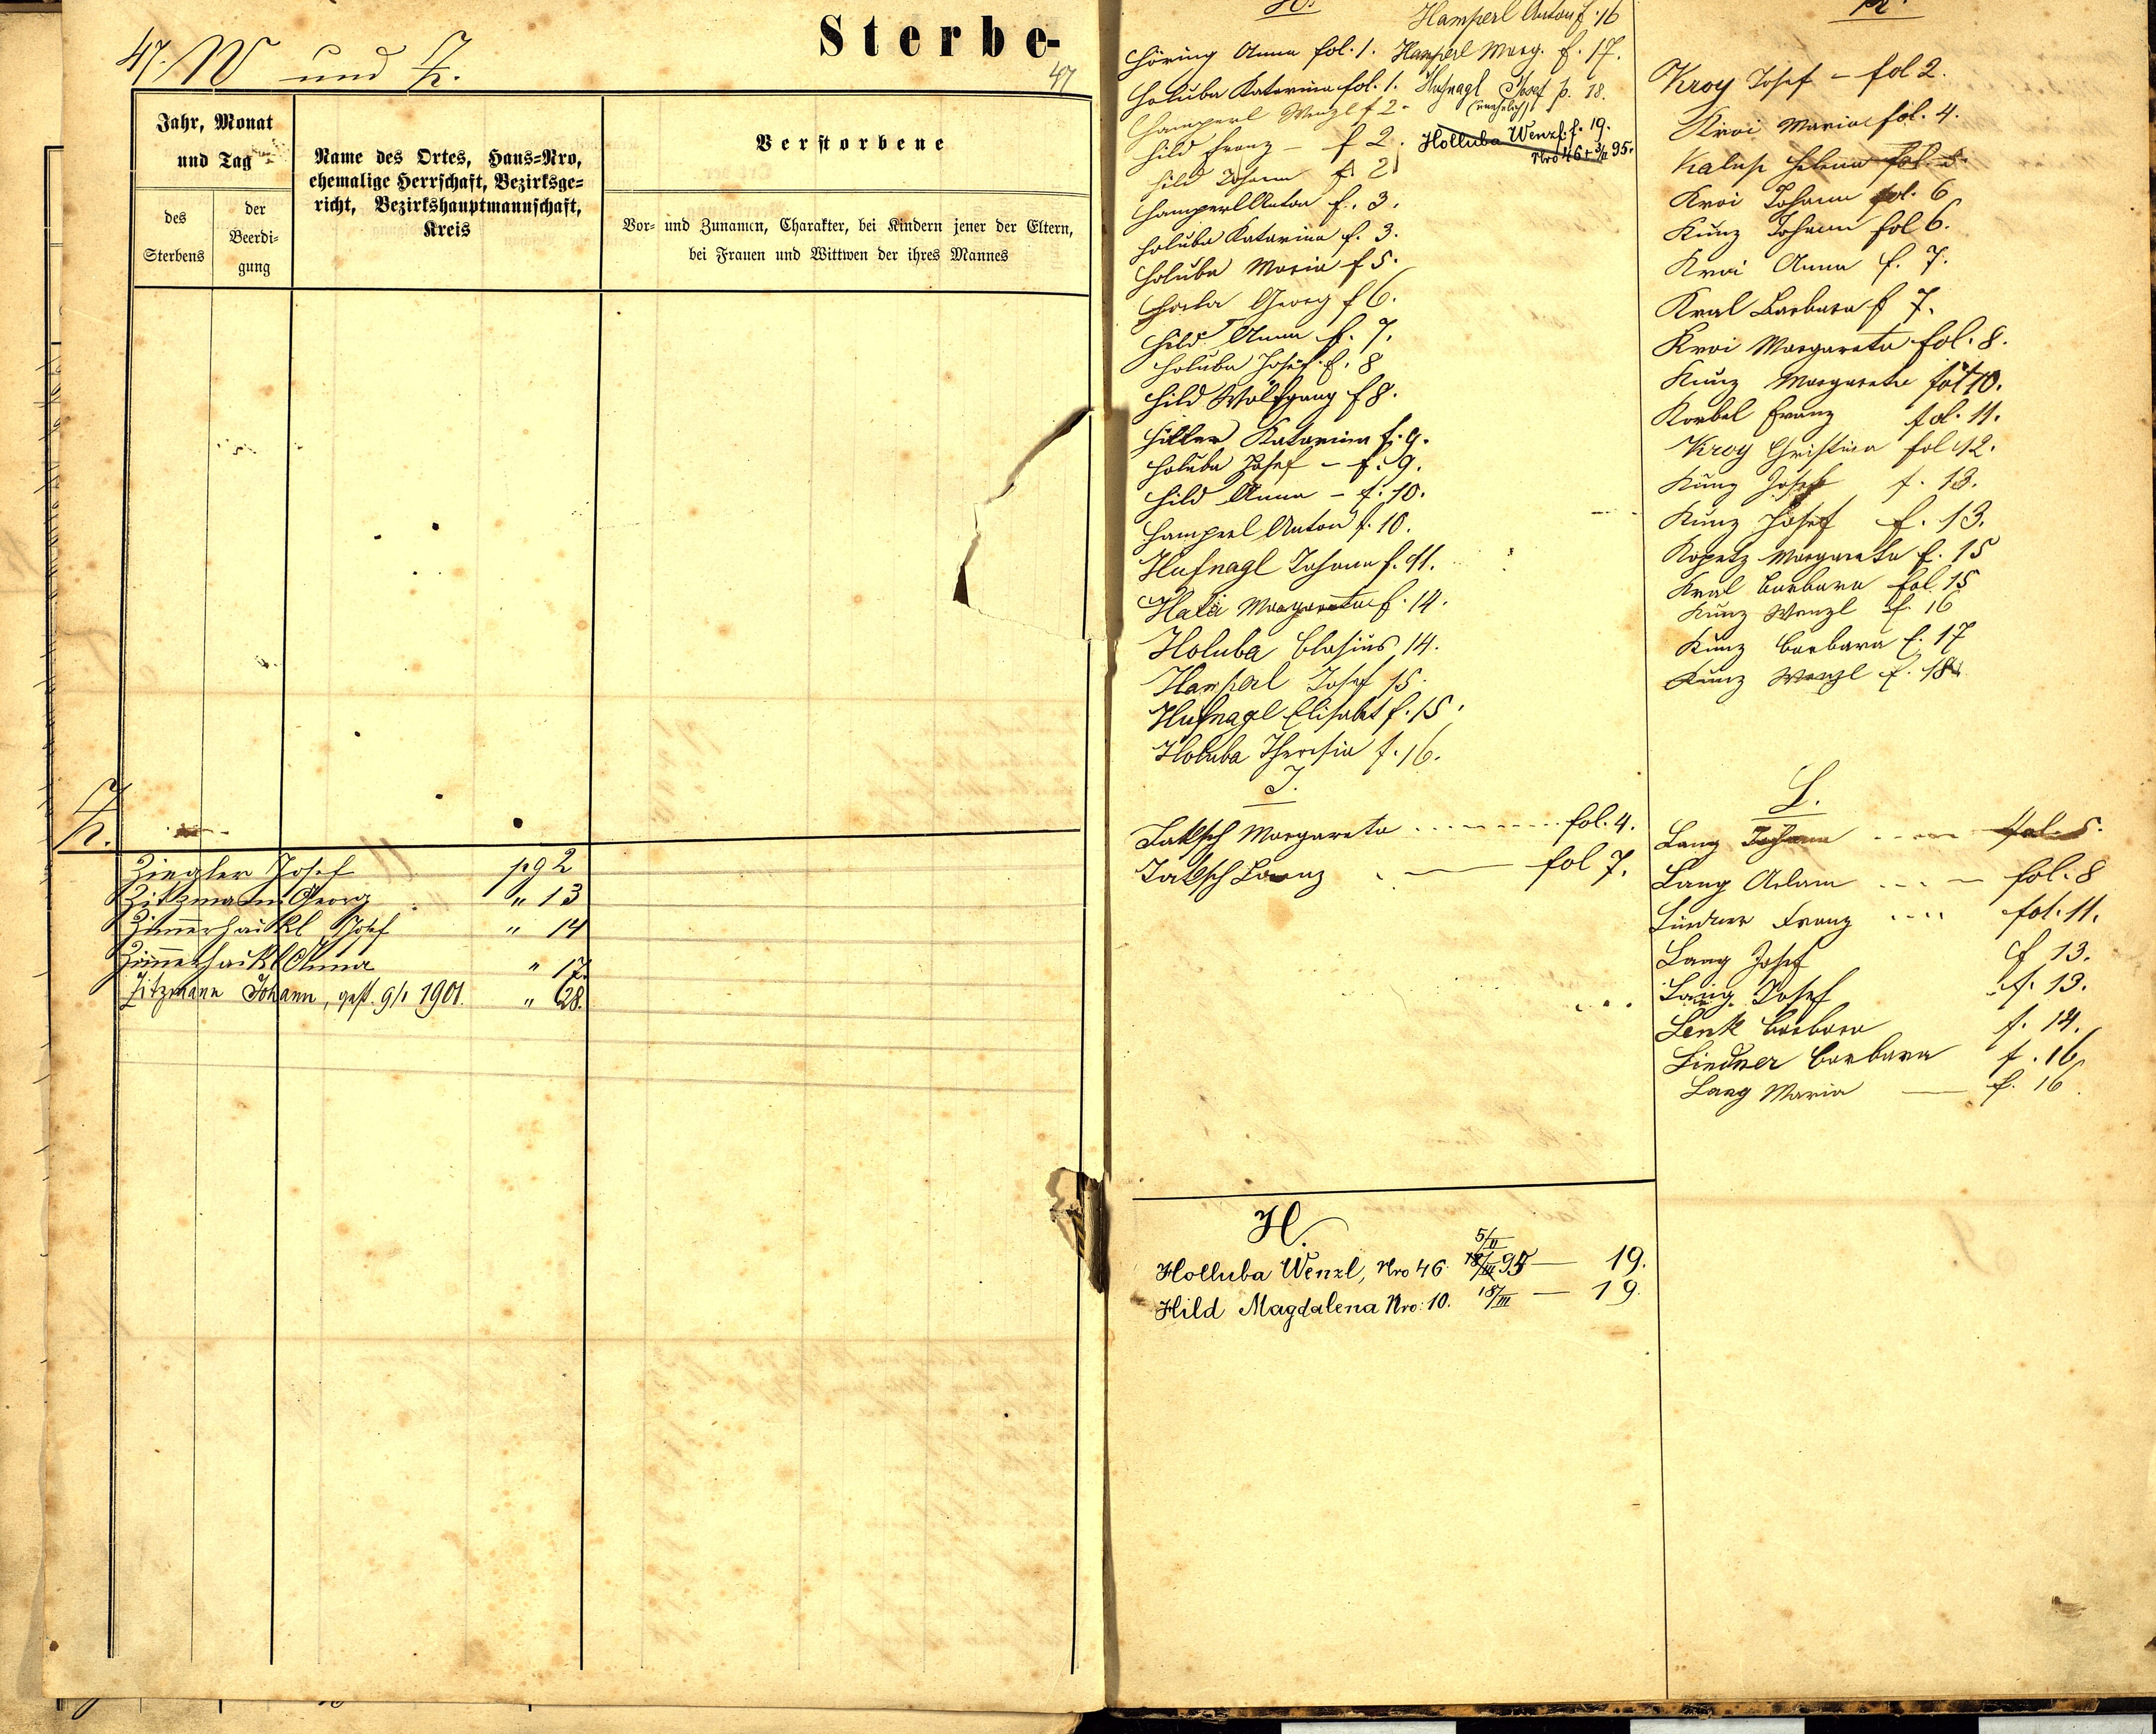 47. W und Z.
Sterbe-
47
Jahr, Monat
und Tag
des
Sterbens
der
Beerdi-
gung
Name des Ortes, Haus-Nro,
ehemalige Herrschaft, Bezirksge-
richt, Bezirkshauptmannschaft,
Kreis
Verstorbene
Vor- und Zunamen, Charakter, bei Kindern jener der Eltern,
bei Frauen und Wittwen der ihres Mannes
Z.
Ziegler Josef pg 2
Zitzmann Georg " 13
Zimerhaikl Josef " 14
Zimerhaikl Anna " 17.
Zitzmann Johann, gest. 9/1 1901. " 28.
H.
Höring Anna fol. 1.
Holuba Katarina fol. 1.
Hamperl Wenzl f 2.
Hild Franz – f 2.
Hild Johann f. 2
Hamperl Anton f. 3.
Holuba Katarina f. 3.
Holuba Maria f 5.
Georg f 6.
Hild Anna f. 7.
Holuba Josef f. 8
Hild Wolfgang f 8.
Hiller Katarina f. 9.
Holuba Josef – f. 9.
Hild Anna – f. 10.
Hamperl Anton f. 10.
Hufnagl Johann f. 11.
Margareta f. 14.
Holuba Blasius 14.
Hamperl Josef 15.
Hufnagl Elisabet f. 15.
Holuba Theresia f. 16.
Hamperl Anton f. 16
Hamperl Marg. f. 17.
Hufnagl Josef p. 18.
(unehelich)
Holluba Wenzl. f. 19.
Nro 46 + 5/II 95.
J.
Jaksch Margareta fol. 4.
Jaksch Franz fol 7.
H.
5/II
Holluba Wenzl, Nro 46. 18/III 95 — 19.
Hild Magdalena Nro: 10. 18/III — 19.
K.
Kroy Josef – fol 2.
Kroi Maria fol. 4.
Helena fol. 5.
Kroi Johann fol. 6
Kunz Johann fol 6.
Kroi Anna f. 7.
Kral Barbara f 7.
Kroi Margareta fol. 8.
Kunz Margareta fol 10.
Korbel Franz fol. 11.
Kroy Christina fol 12.
Kunz Josef f. 13.
Kunz Josef f. 13.
Kopetz Margareta f. 15
Kral Barbara fol 15
Kunz Wenzl f. 16
Kunz Barbara f. 17
Kunz Wenzl f. 18
L.
Lang Johann fol. 5.
Lang Adam fol. 8
Lindner Franz fol. 11.
Lang Josef f 13.
Lang Josef f. 13.
Lenk Barbara f. 14.
Lindner Barbara f. 16
Lang Maria — f. 16.